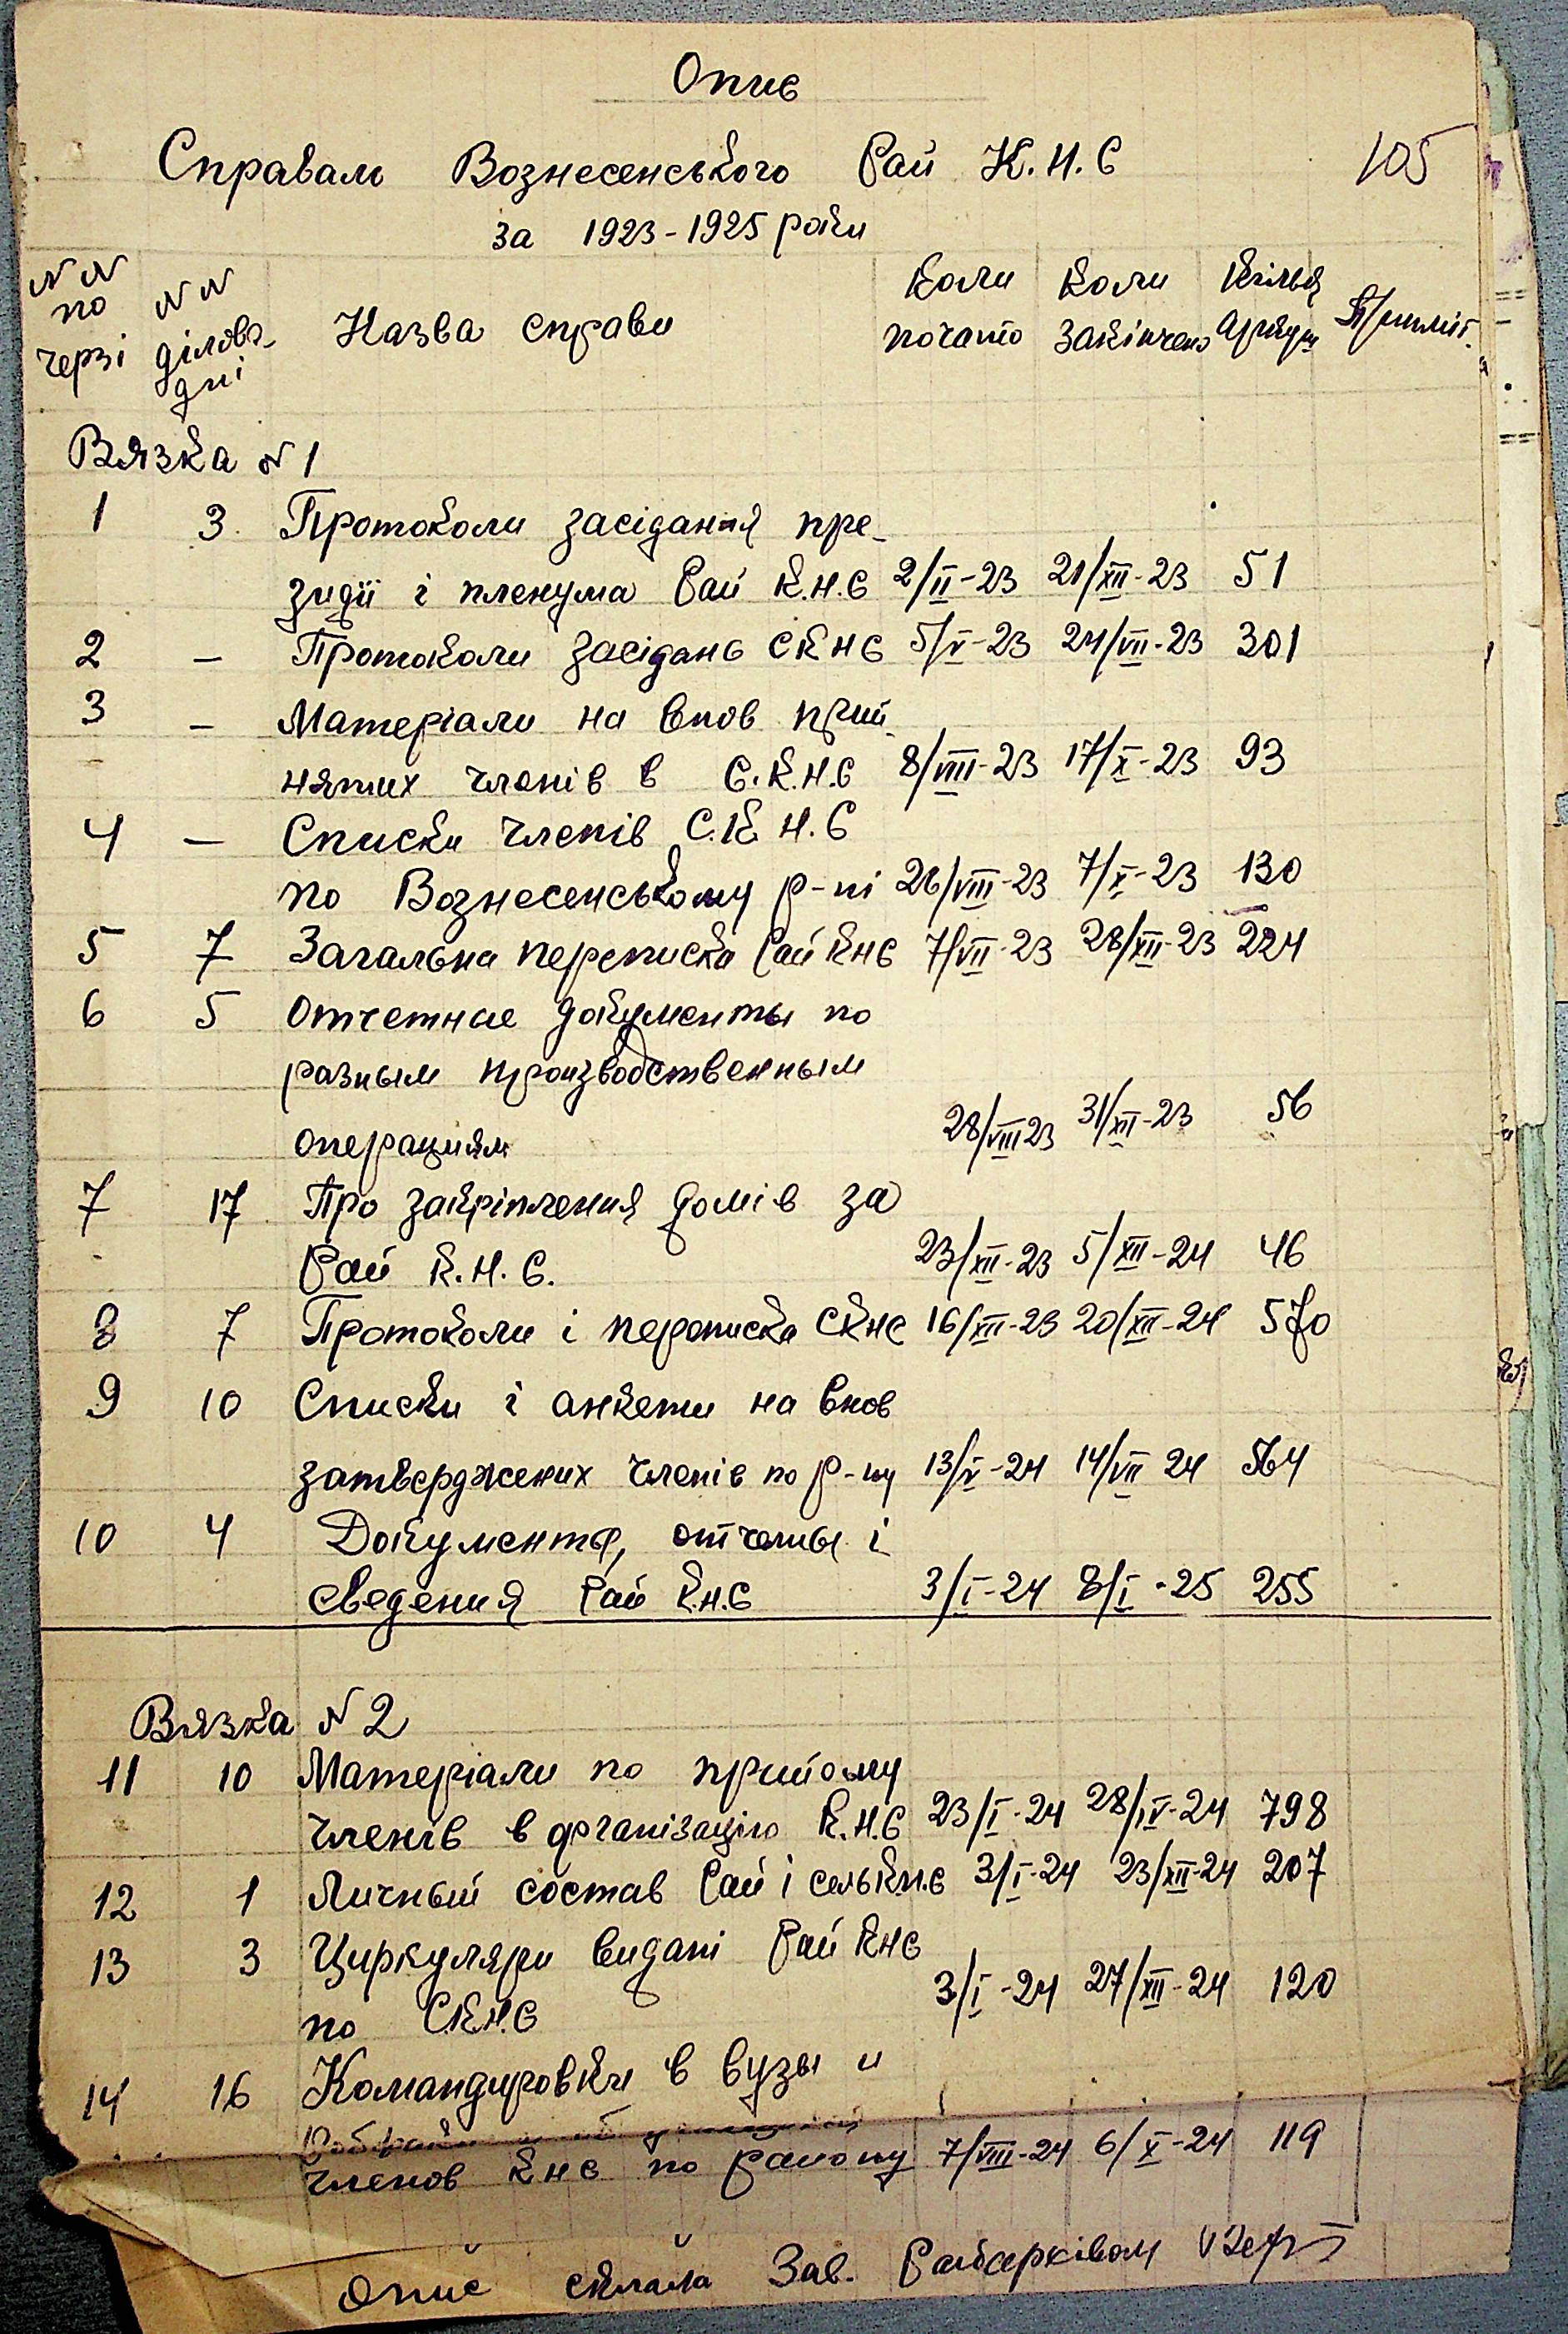 Опис
Справам Вознесенського Рай К.Н.С 105
за 1923-1925 роки
№№ по черзі №№ діловодні Назва справи Коли почато Коли закінчено Кільк аркуш Приміт.
Вязка №1
1 3 Протоколи засідання пре-
зидії і пленума Рай К.Н.С 2/II-23 21/XII-23 51
2 — Протоколи засідань СКНС 5/V-23 24/VII-23 301
3 — Матеріали на внов прий-
нятих членів в С.К.Н.С 8/VIII-23 17/X-23 93
4 — Списки членів С.К.Н.С
по Вознесенському р-ні 26/VIII-23 7/X-23 130
5 7 Загальна переписка Рай КНС 7/VII-23 28/XII-23 224
6 5 Отчетные документы по
разным производственным
операциям 28/VIII 23 31/XII-23 56
7 17 Про закріплення домів за
Рай К.Н.С. 23/XII-23 5/XII-24 46
8 7 Протоколи і переписка СКНС 16/XII-23 20/XII-24 570
9 10 Списки і анкети на внов
затверджених членів по р-ну 13/V-24 14/VII 24 564
10 4 Документы, отчеты і
сведения Рай К.Н.С 3/I-24 8/I-25 255
Вязка №2
11 10 Матеріали по прийому
членів в організацію К.Н.С 23/I-24 28/IV-24 798
12 1 Личный состав Рай і сельКНС 3/I-24 23/XII-24 207
13 3 Циркуляри видані Рай КНС
по С.К.Н.С 3/I-24 27/XII-24 120
14 16 Командировки в вузы и
членов КНС по району 7/VIII-24 6/X-24 119
Опис склала Зав. Райархівом